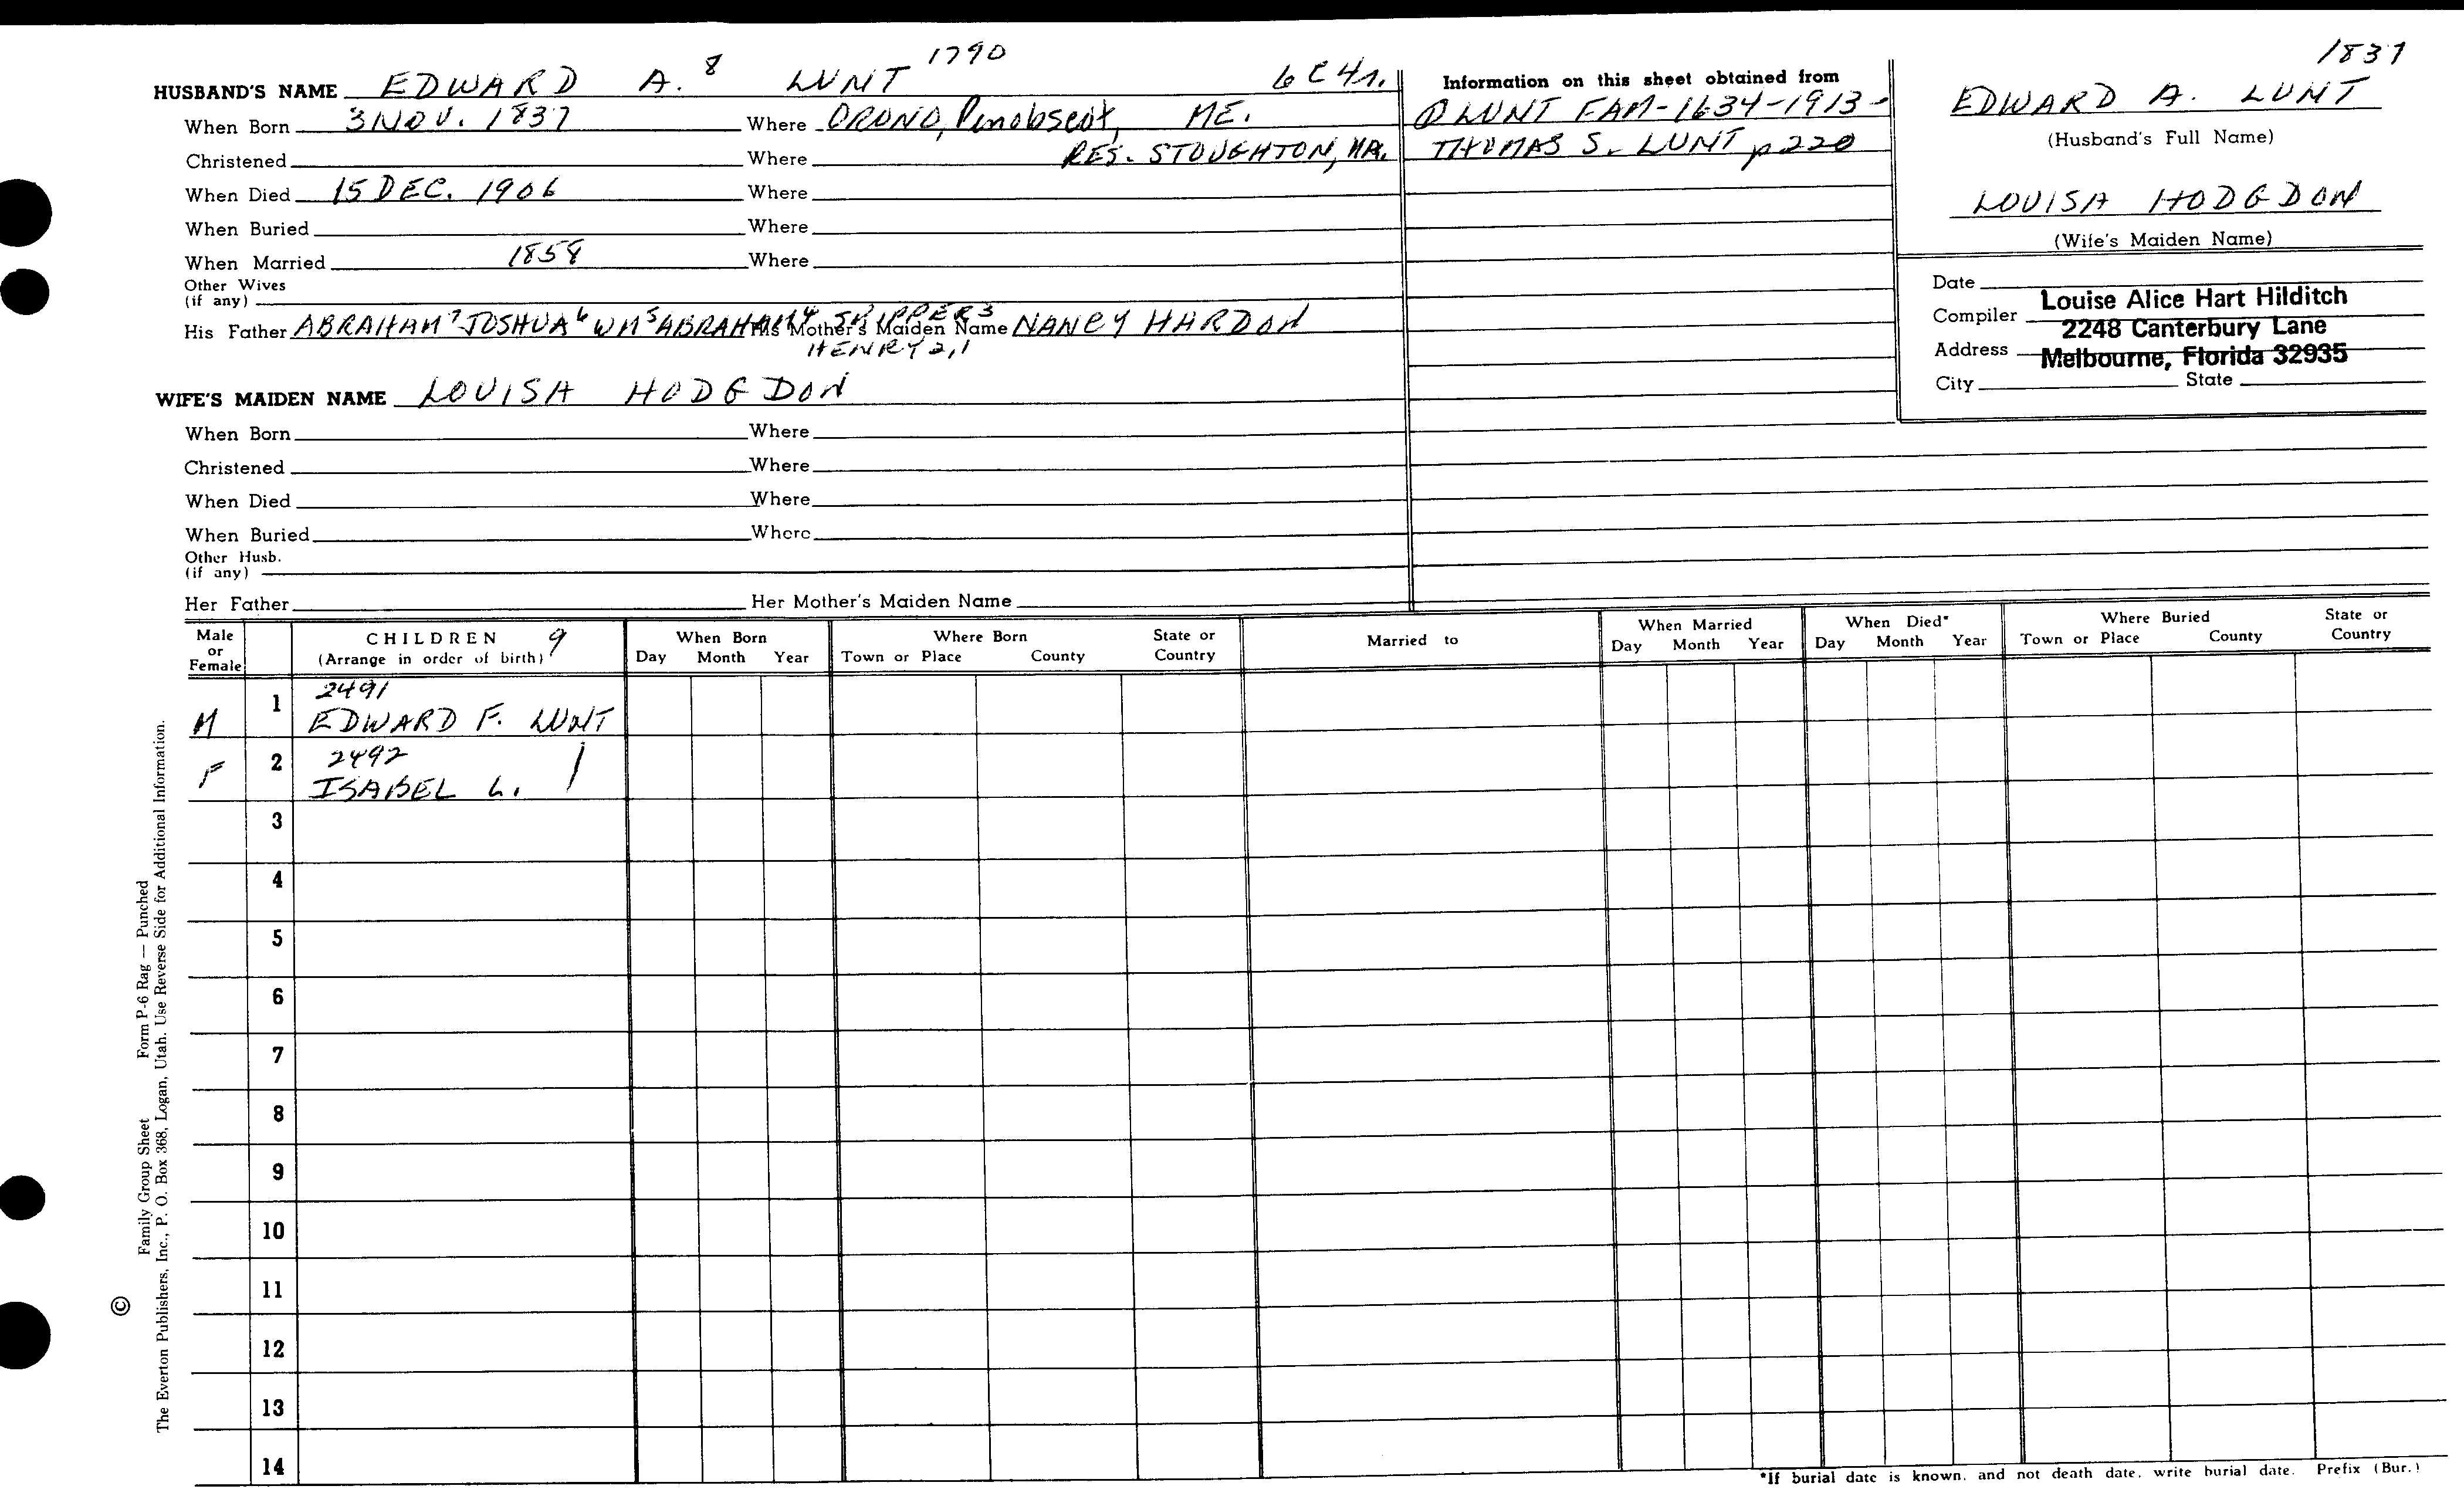 1790
1837
HUSBAND'S NAME EDWARD A. 8 LUNT
When Born 3 NOV. 1837 Where ORONO, Penobscot, ME.
Christened Where RES. STOUGHTON, MA.
When Died 15 DEC. 1906 Where
When Buried Where
When Married 1858 Where
Other Wives
(if any)
His Father ABRAHAM 7 JOSHUA 6 WM 5 ABRAHAM 4 SKIPPER 3 His Mother's Maiden Name NANCY HARDON
HENRY 2,1
WIFE'S MAIDEN NAME LOUISA HODGDON
When Born Where
Christened Where
When Died Where
When Buried Where
Other Husb.
(if any)
Her Father Her Mother's Maiden Name
Information on this sheet obtained from
LUNT FAM-1634-1913-
THOMAS S. LUNT p 220
EDWARD A. LUNT
(Husband's Full Name)
LOUISA HODGDON
(Wife's Maiden Name)
Date
Compiler Louise Alice Hart Hilditch
2248 Canterbury Lane
Address Melbourne, Florida 32935
City State
Male
or
Female
CHILDREN 9
(Arrange in order of birth)
When Born
Day Month Year
Where Born
Town or Place County State or
Country
Married to
When Married
Day Month Year
When Died*
Day Month Year
Where Buried
Town or Place County State or
Country
1 2491
M EDWARD F. LUNT
2 2492
F ISABEL L.
3
4
5
6
7
8
9
10
11
12
13
14
*If burial date is known, and not death date, write burial date. Prefix (Bur.)
© Family Group Sheet Form P-6 Rag — Punched
The Everton Publishers, Inc., P. O. Box 368, Logan, Utah. Use Reverse Side for Additional Information.